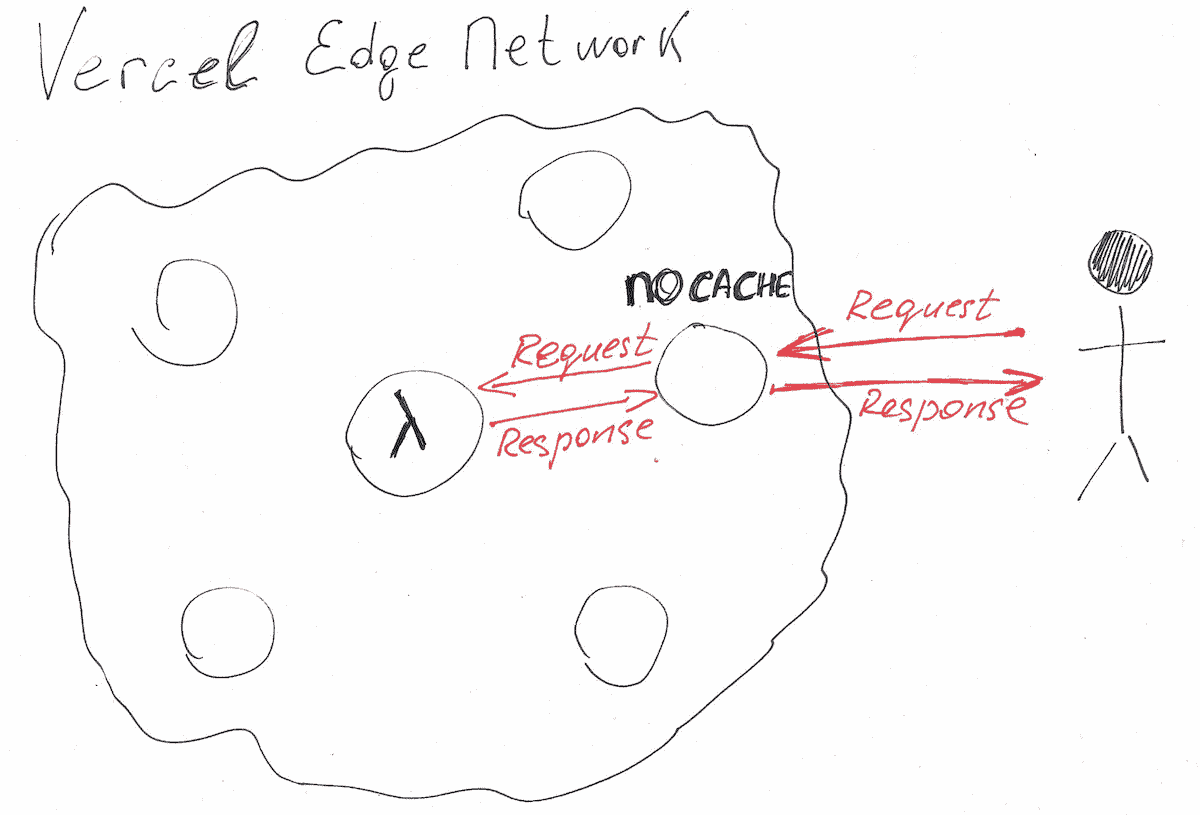 Vercel Edge Network
NO CACHE
Request
Request
Response
λ
Response